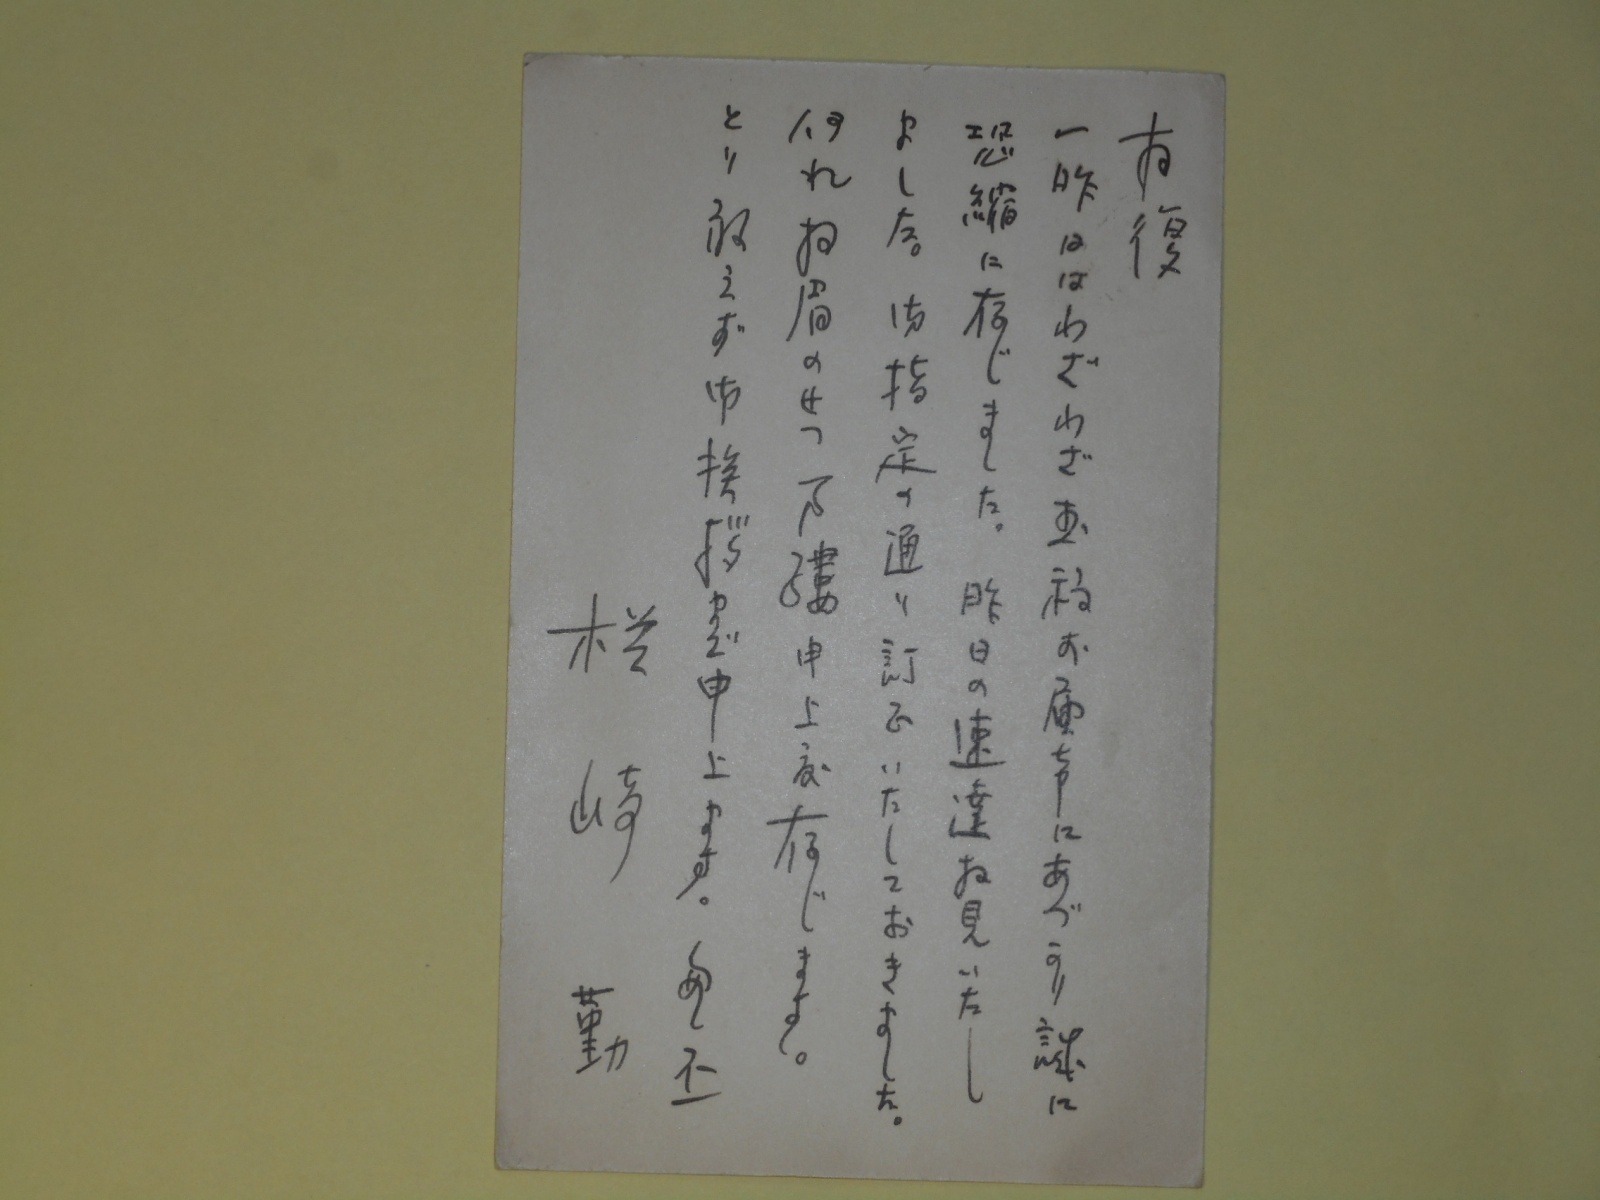 拝復
一昨日はわざわざ玉稿お届けにあづかり誠に
恐縮に存じました。昨日の速達お見いたし
ました。御指定の通り訂正いたしておきました。
何れお眉の せつ 万縷申上度存じます。
とり敢えず御挨拶まで申上ます。 匆々
楢崎 勤